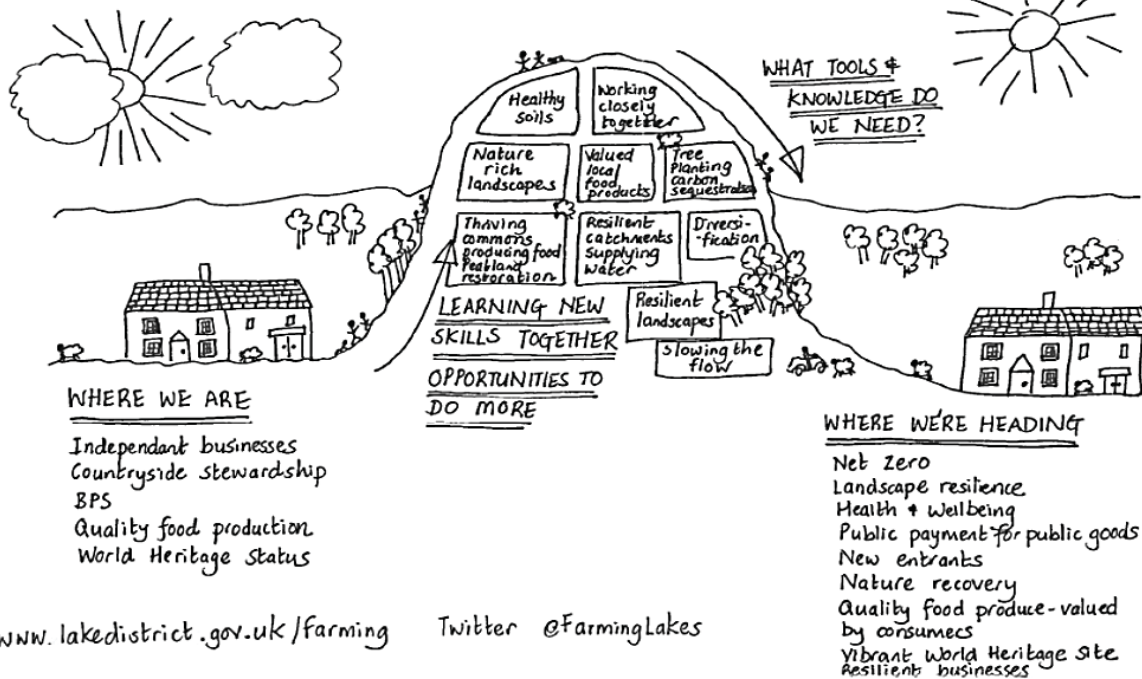 WHAT TOOLS &
KNOWLEDGE DO
WE NEED?
Healthy
soils
Working
closely
together
Nature
rich
landscapes
Valued
local
food
products
Tree
Planting
carbon
sequestration
Thriving
commons
producing food
Peatland
restoration
Resilient
catchments
Supplying
water
Diversi-
-fication
Resilient
landscapes
Slowing the
flow
LEARNING NEW
SKILLS TOGETHER
OPPORTUNITIES TO
DO MORE
WHERE WE ARE
Independant businesses
Countryside stewardship
BPS
Quality food production
World Heritage Status
WHERE WE'RE HEADING
Net Zero
Landscape resilience
Health & Wellbeing
Public payment for public goods
New entrants
Nature recovery
Quality food produce - valued
by consumers
Vibrant World Heritage Site
Resilient businesses
www.lakedistrict.gov.uk/farming
Twitter @FarmingLakes